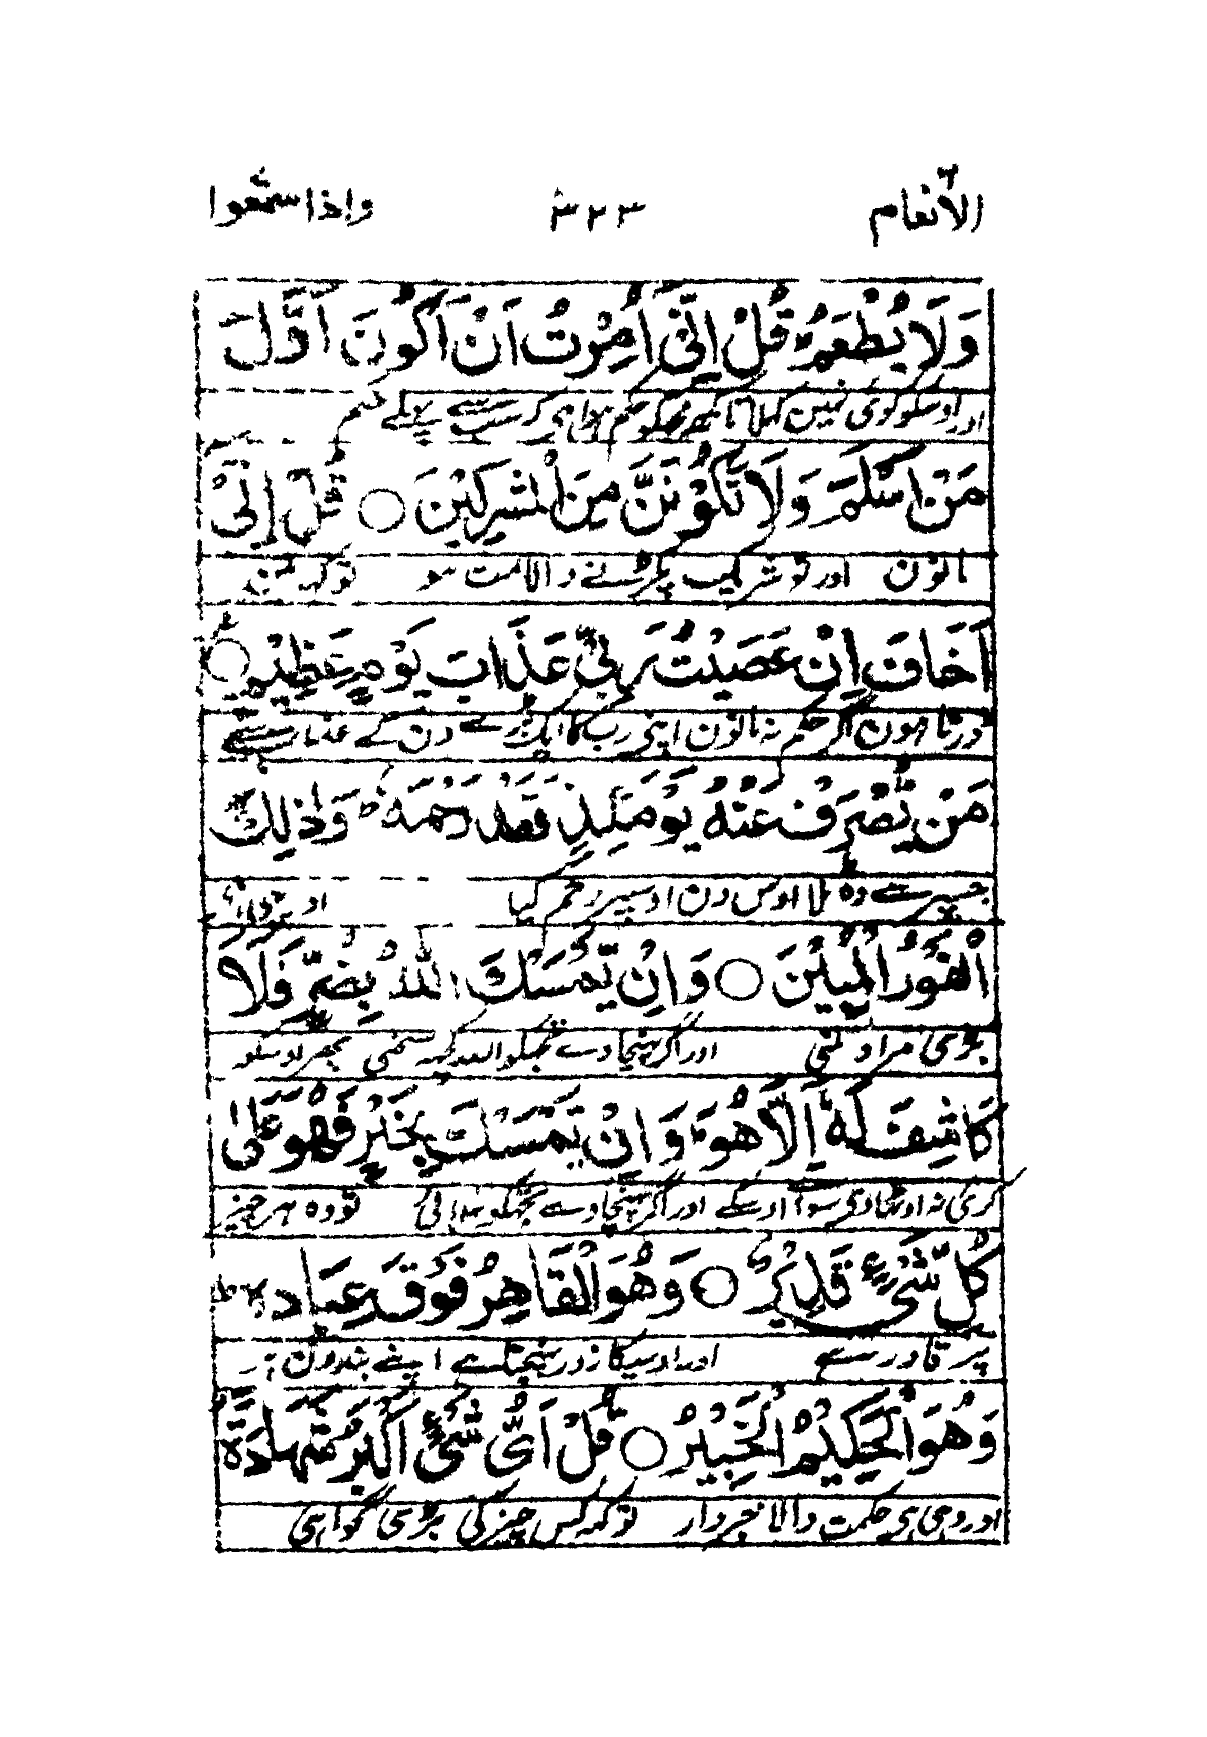 الانعام ۶ ۳۲۳ واذا سمعوا ۷
وَلَا يُطْعَمُ ؕ قُلْ اِنِّىْۤ اُمِرْتُ اَنْ اَكُوْنَ اَوَّلَ
اور اوسکو کوئی نہین کھلاتا کہہ مجھکو حکم ہوا ہی کہ سب سے پہلے حکم
مَنْ اَسْلَمَ وَلَا تَكُوْنَنَّ مِنَ الْمُشْرِكِيْنَ ○ قُلْ اِنِّىْۤ
مانون اور تو شریک پکڑنے والا مت ہو تو کہہ مین
اَخَافُ اِنْ عَصَيْتُ رَبِّىْ عَذَابَ يَوْمٍ عَظِيْمٍ ○
ڈرتا ہون اگر حکم نہ مانون اپنی رب کا ایک بڑے دن کے عذاب سے
مَنْ يُّصْرَفْ عَنْهُ يَوْمَئِذٍ فَقَدْ رَحِمَهٗ ؕ وَذٰلِكَ
جسپر سے وہ ٹلا اوس دن اوسپر رحم کیا اور
الْفَوْزُ الْمُبِيْنُ ○ وَاِنْ يَّمْسَسْكَ اللّٰهُ بِضُرٍّ فَلَا
بڑی مراد ملنی اور اگر پہنچا دے تجھکو اللہ کچھ سختی پھر اوسکو
كَاشِفَ لَهٗۤ اِلَّا هُوَ ؕ وَاِنْ يَّمْسَسْكَ بِخَيْرٍ فَهُوَ عَلٰى
کوئی نہ اوٹھادی سوا اوسکے اور اگر پہنچا دے تجھکو بھلائی تو وہ ہر چیز
كُلِّ شَىْءٍ قَدِيْرٌ ○ وَهُوَ الْقَاهِرُ فَوْقَ عِبَادِهٖ ؕ
پر قادر ہے اور اوسیکا زور پہنچتا ہے اپنے بندون پر
وَهُوَ الْحَكِيْمُ الْخَبِيْرُ ○ قُلْ اَىُّ شَىْءٍ اَكْبَرُ شَهَادَةً
اور وہی ہی حکمت والا خبردار تو کہہ کس چیز کی بڑی گواہی